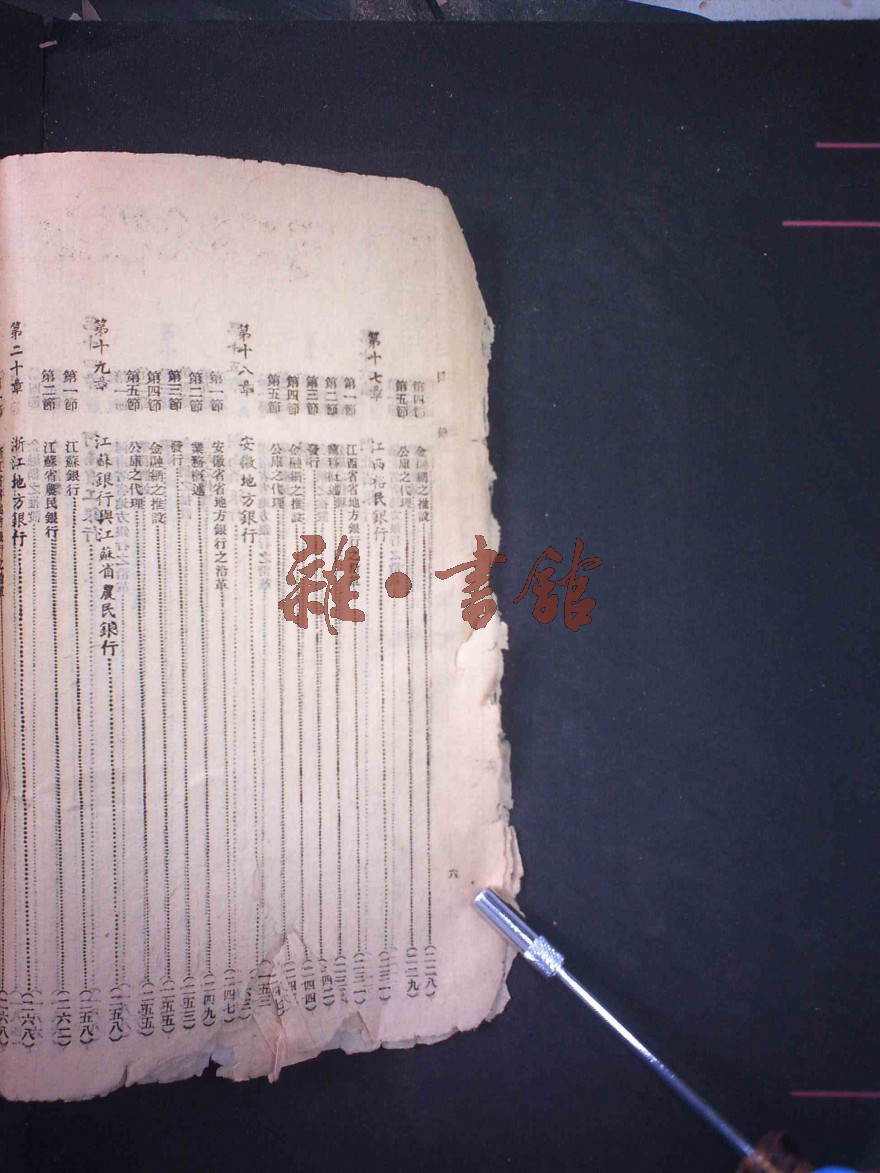 目 錄
第四節 金融網之推設 (二二八)
第五節 公庫之代理 (二二九)
第十七章 江西裕民銀行 (二三一)
第一節 江西省省地方銀行之沿革 (二三一)
第二節 業務概述
第三節 發行 (二四四)
第四節 金融網之推設
第五節 公庫之代理
第十八章 安徽地方銀行
第一節 安徽省省地方銀行之沿革 (二四七)
第二節 業務概述 (二四九)
第三節 發行 (二五三)
第四節 金融網之推設 (二五五)
第五節 公庫之代理 (二五五)
第十九章 江蘇銀行與江蘇省農民銀行 (二五八)
第一節 江蘇銀行 (二五八)
第二節 江蘇省農民銀行 (二六二)
第二十章 浙江地方銀行 (二六八)
六
雜·書館